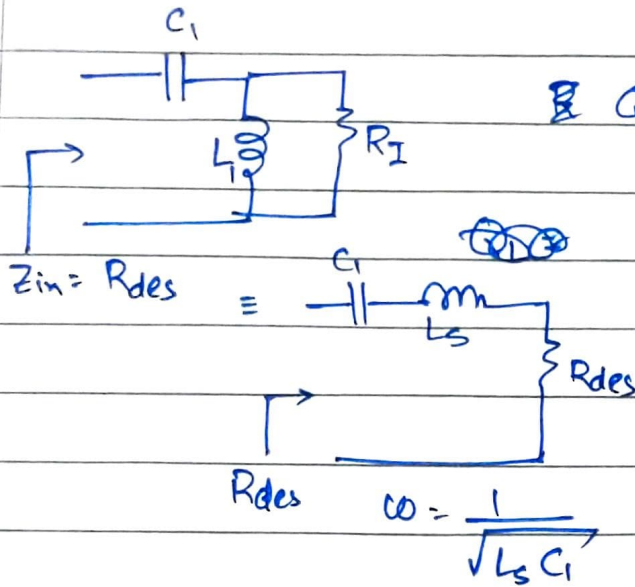 C₁
L₁ R_I
Zin = Rdes
≡ C₁ Ls Rdes
Rdes
ω = 1/√(Ls C₁)